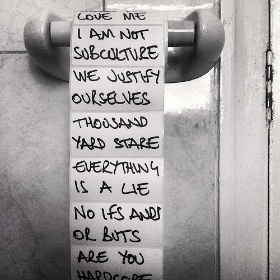 LOVE ME
I AM NOT
SUBCULTURE
WE JUSTIFY
OURSELVES
THOUSAND
YARD STARE
EVERYTHING
IS A LIE
NO IFS ANDS
OR BUTS
ARE YOU
HARDCORE